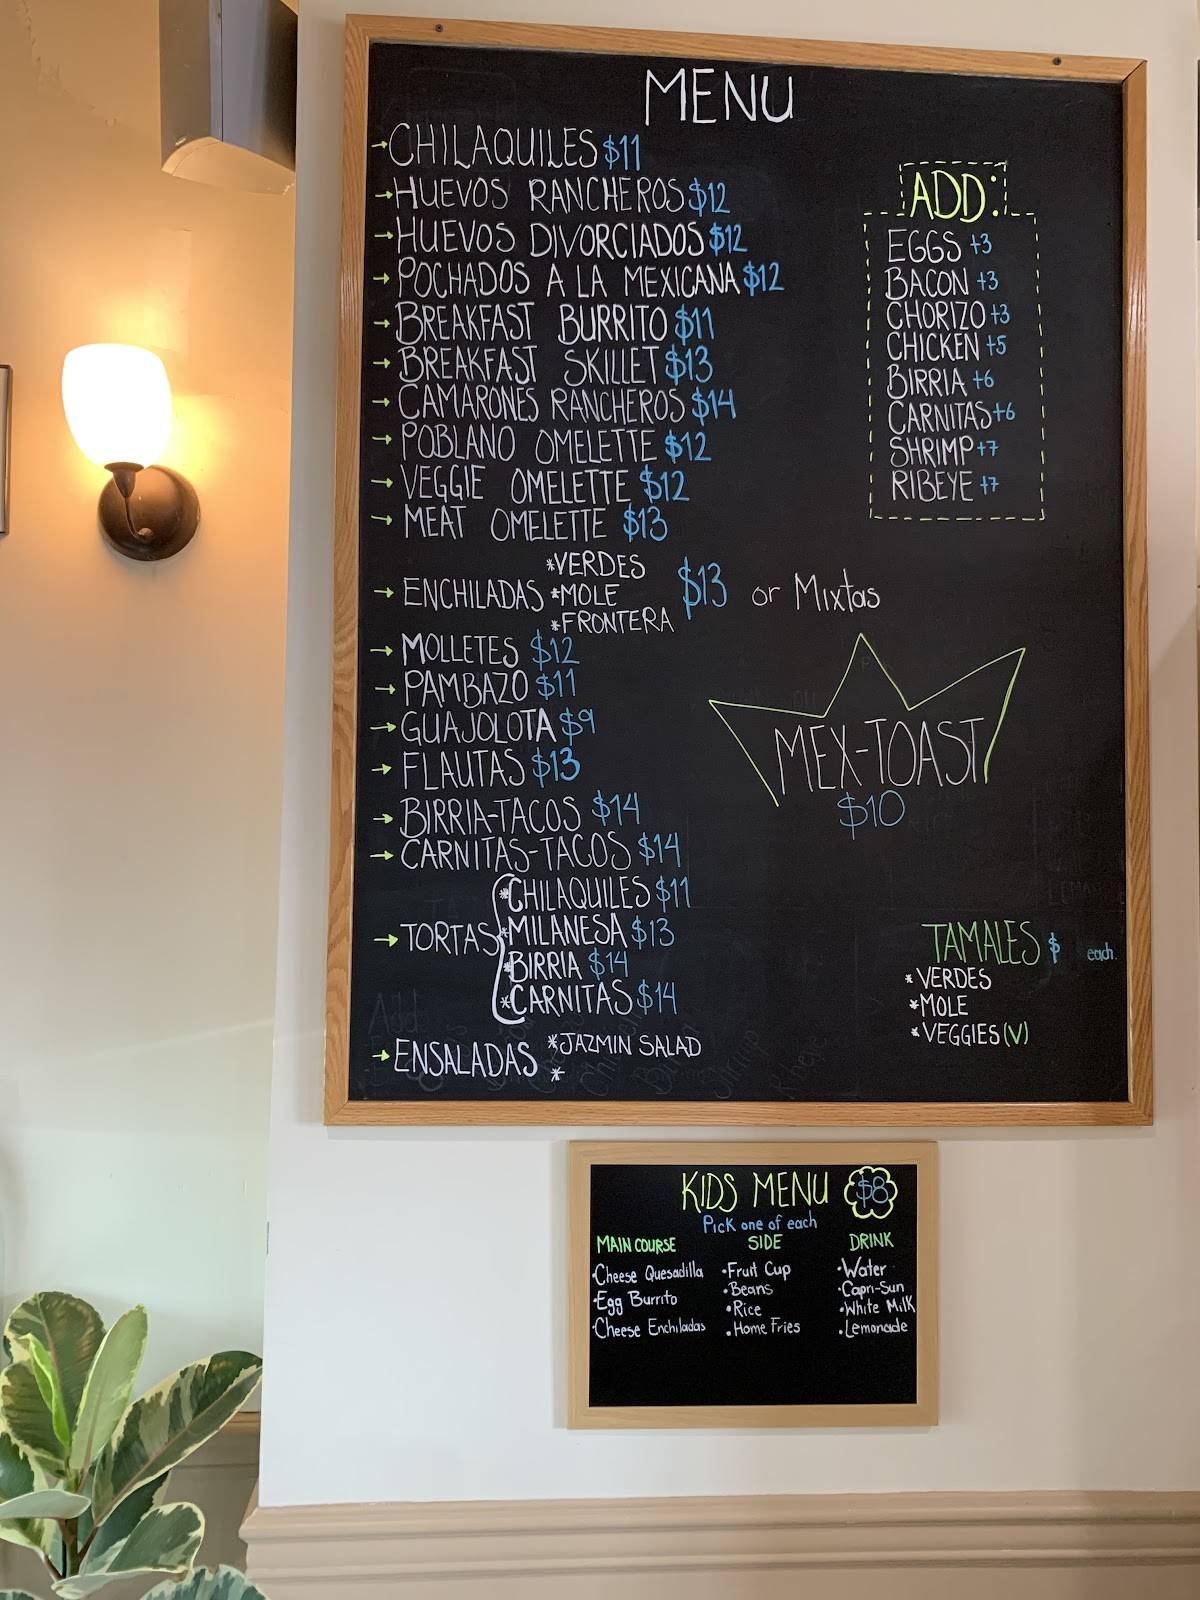 MENU
→CHILAQUILES $11
→HUEVOS RANCHEROS $12
→HUEVOS DIVORCIADOS $12
→POCHADOS A LA MEXICANA $12
→BREAKFAST BURRITO $11
→BREAKFAST SKILLET $13
→CAMARONES RANCHEROS $14
→POBLANO OMELETTE $12
→VEGGIE OMELETTE $12
→MEAT OMELETTE $13
→ENCHILADAS
*VERDES
*MOLE
*FRONTERA
$13 or Mixtas
→MOLLETES $12
→PAMBAZO $11
→GUAJOLOTA $9
→FLAUTAS $13
→BIRRIA-TACOS $14
→CARNITAS-TACOS $14
→TORTAS
*CHILAQUILES $11
*MILANESA $13
*BIRRIA $14
*CARNITAS $14
→ENSALADAS
*JAZMIN SALAD
*
ADD:
EGGS +3
BACON +3
CHORIZO +3
CHICKEN +5
BIRRIA +6
CARNITAS +6
SHRIMP +7
RIBEYE +7
MEX-TOAST
$10
TAMALES $ each.
*VERDES
*MOLE
*VEGGIES (V)
KIDS MENU $8
Pick one of each
MAIN COURSE
•Cheese Quesadilla
•Egg Burrito
•Cheese Enchiladas
SIDE
•Fruit Cup
•Beans
•Rice
•Home Fries
DRINK
•Water
•Capri-Sun
•White Milk
•Lemonade